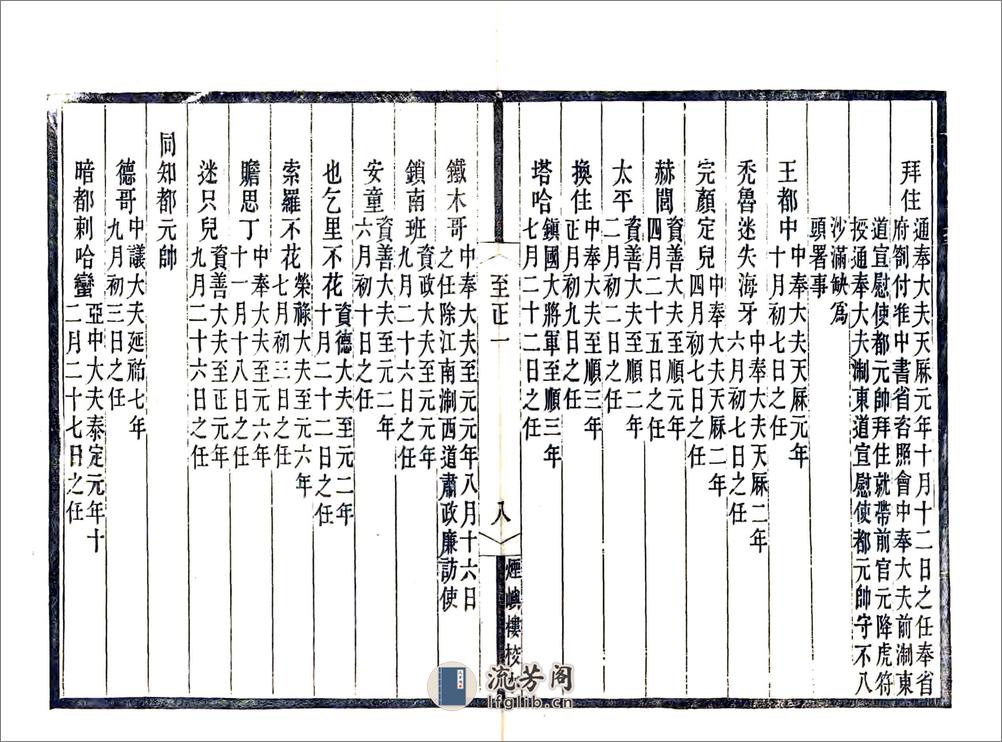 拜住通奉大夫天厤元年十月十二日之任奉省
府劄付准中書省咨照會中奉大夫前淛東
道宣慰使都元帥拜住就帶前官元降虎符
授通奉大夫淛東道宣慰使都元帥守不八
沙滿缺爲
頭署事
王都中中奉大夫天厤元年
十月初七日之任
禿魯迷失海牙中奉大夫天厤二年
六月初七日之任
完顏定兒中奉大夫天厤二年
四月初七日之任
赫閭資善大夫至順元年
四月二十五日之任
太平資善大夫至順二年
二月初八日之任
換住中奉大夫至順三年
正月初九日之任
塔哈鎭國大將軍至順三年
七月二十二日之任
至正一
八
煙嶼樓校
鐵木哥中奉大夫至元元年八月十六日
之任除江南淛西道肅政廉訪使
鎖南班資政大夫至元元年
九月二十六日之任
安童資善大夫至元二年
六月初十日之任
也乞里不花資德大夫至元二年
十月二十二日之任
索羅不花榮祿大夫至元六年
七月初三日之任
贍思丁中奉大夫至元六年
十一月十八日之任
迷只兒資善大夫至正元年
九月二十六日之任
同知都元帥
德哥中議大夫延祐七年
九月初三日之任
暗都剌哈蠻亞中大夫泰定元年十
二月二十七日之任
流芳阁
lfglib.cn